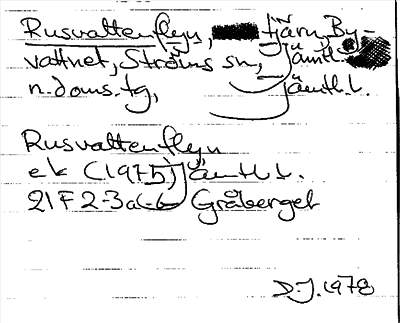 Rusvattenflyn, tjärn, By-
vattnet, Ströms sn, Jämtl.
n. doms. tg, Jämtl. l.
Rusvattenflyn
ek (1975) Jämtl. l.
21F 2-3a-b Gråberget
D.J. 1978